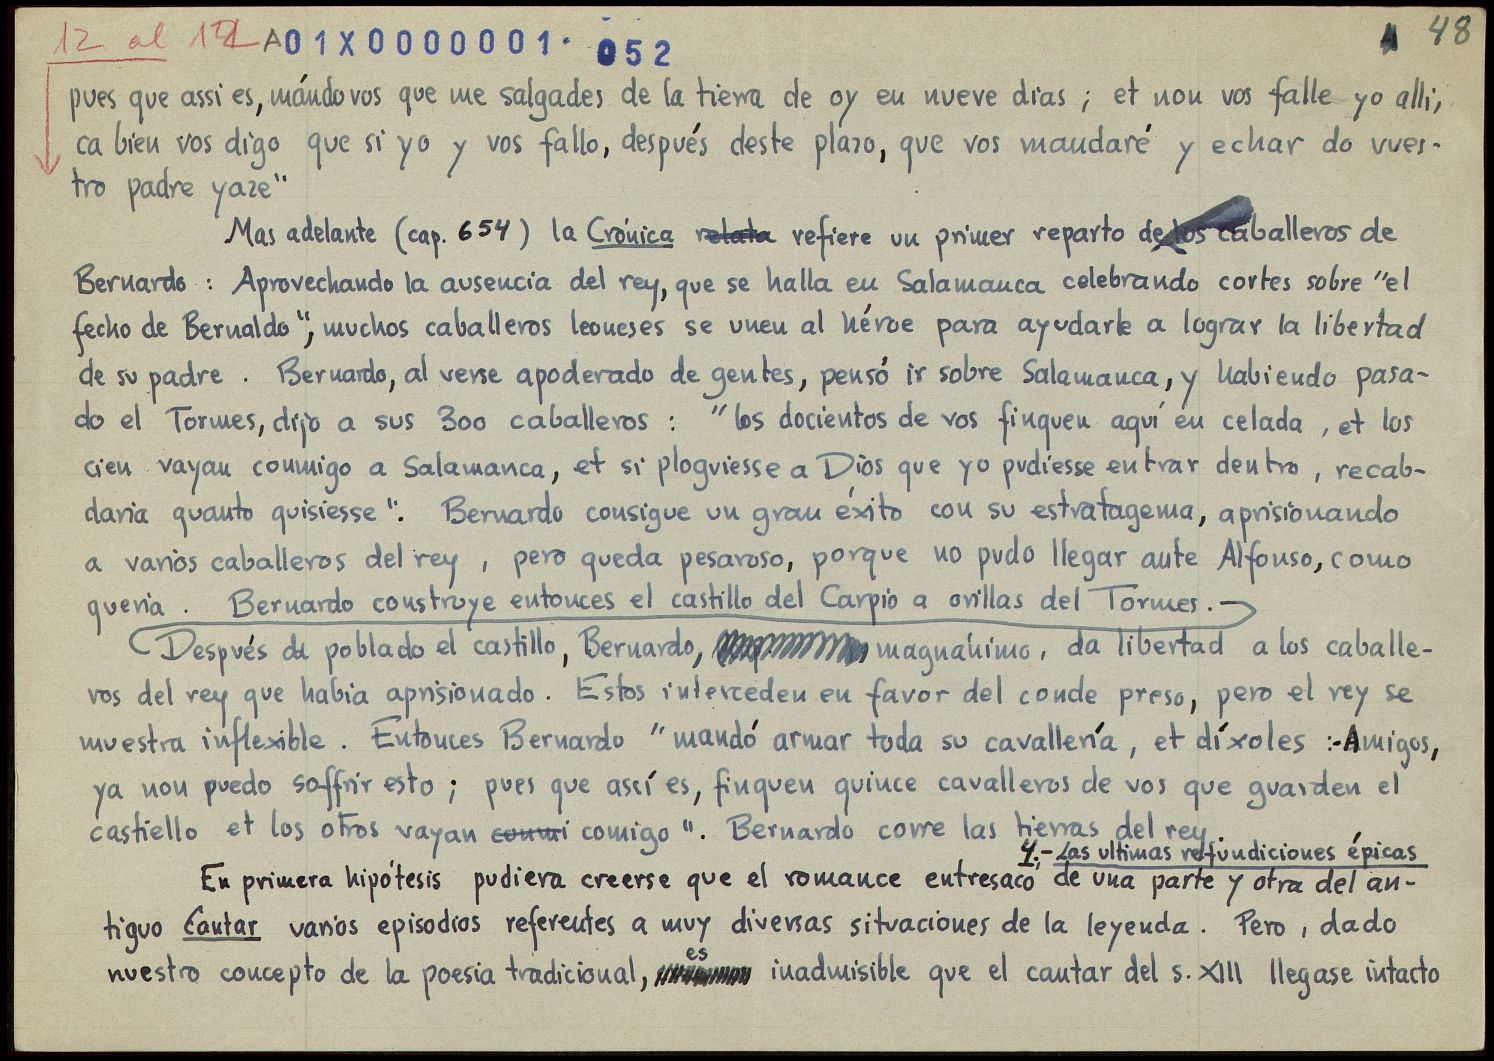 12 al 17 A01X0000001· 052 48
pues que assi es, mándovos que me salgades de la tierra de oy en nueve dias ; et non vos falle yo alli,
ca bien vos digo que si yo y vos fallo, después deste plazo, que vos mandaré y echar do vues-
tro padre yaze"
Mas adelante (cap. 654) la Crónica relata refiere un primer reparto de los caballeros de
Bernardo : Aprovechando la ausencia del rey, que se halla en Salamanca celebrando cortes sobre "el
fecho de Bernaldo", muchos caballeros leoneses se unen al héroe para ayudarle a lograr la libertad
de su padre . Bernardo, al verse apoderado de gentes, pensó ir sobre Salamanca, y habiendo pasa-
do el Tormes, dijo a sus 300 caballeros : "los docientos de vos finquen aquí en celada , et los
cien vayan conmigo a Salamanca, et si ploguiesse a Dios que yo pudiesse entrar dentro , recab-
daria quanto quisiesse". Bernardo consigue un gran éxito con su estratagema, aprisionando
a varios caballeros del rey , pero queda pesaroso, porque no pudo llegar ante Alfonso, como
queria . Bernardo construye entonces el castillo del Carpio a orillas del Tormes.-
Después de poblado el castillo, Bernardo, magnánimo, da libertad a los caballe-
ros del rey que habia aprisionado . Estos interceden en favor del conde preso, pero el rey se
muestra inflexible . Entonces Bernardo "mandó armar toda su cavallería, et díxoles :-Amigos,
ya non puedo soffrir esto ; pues que assí es, finquen quince cavalleros de vos que guarden el
castiello et los otros vayan conmi comigo". Bernardo corre las tierras del rey.
4.- Las ultimas refundiciones épicas
En primera hipótesis pudiera creerse que el romance entresacó de una parte y otra del an-
tiguo Cantar varios episodios referentes a muy diversas situaciones de la leyenda . Pero , dado
nuestro concepto de la poesia tradicional, es inadmisible que el cantar del s. XIII llegase intacto